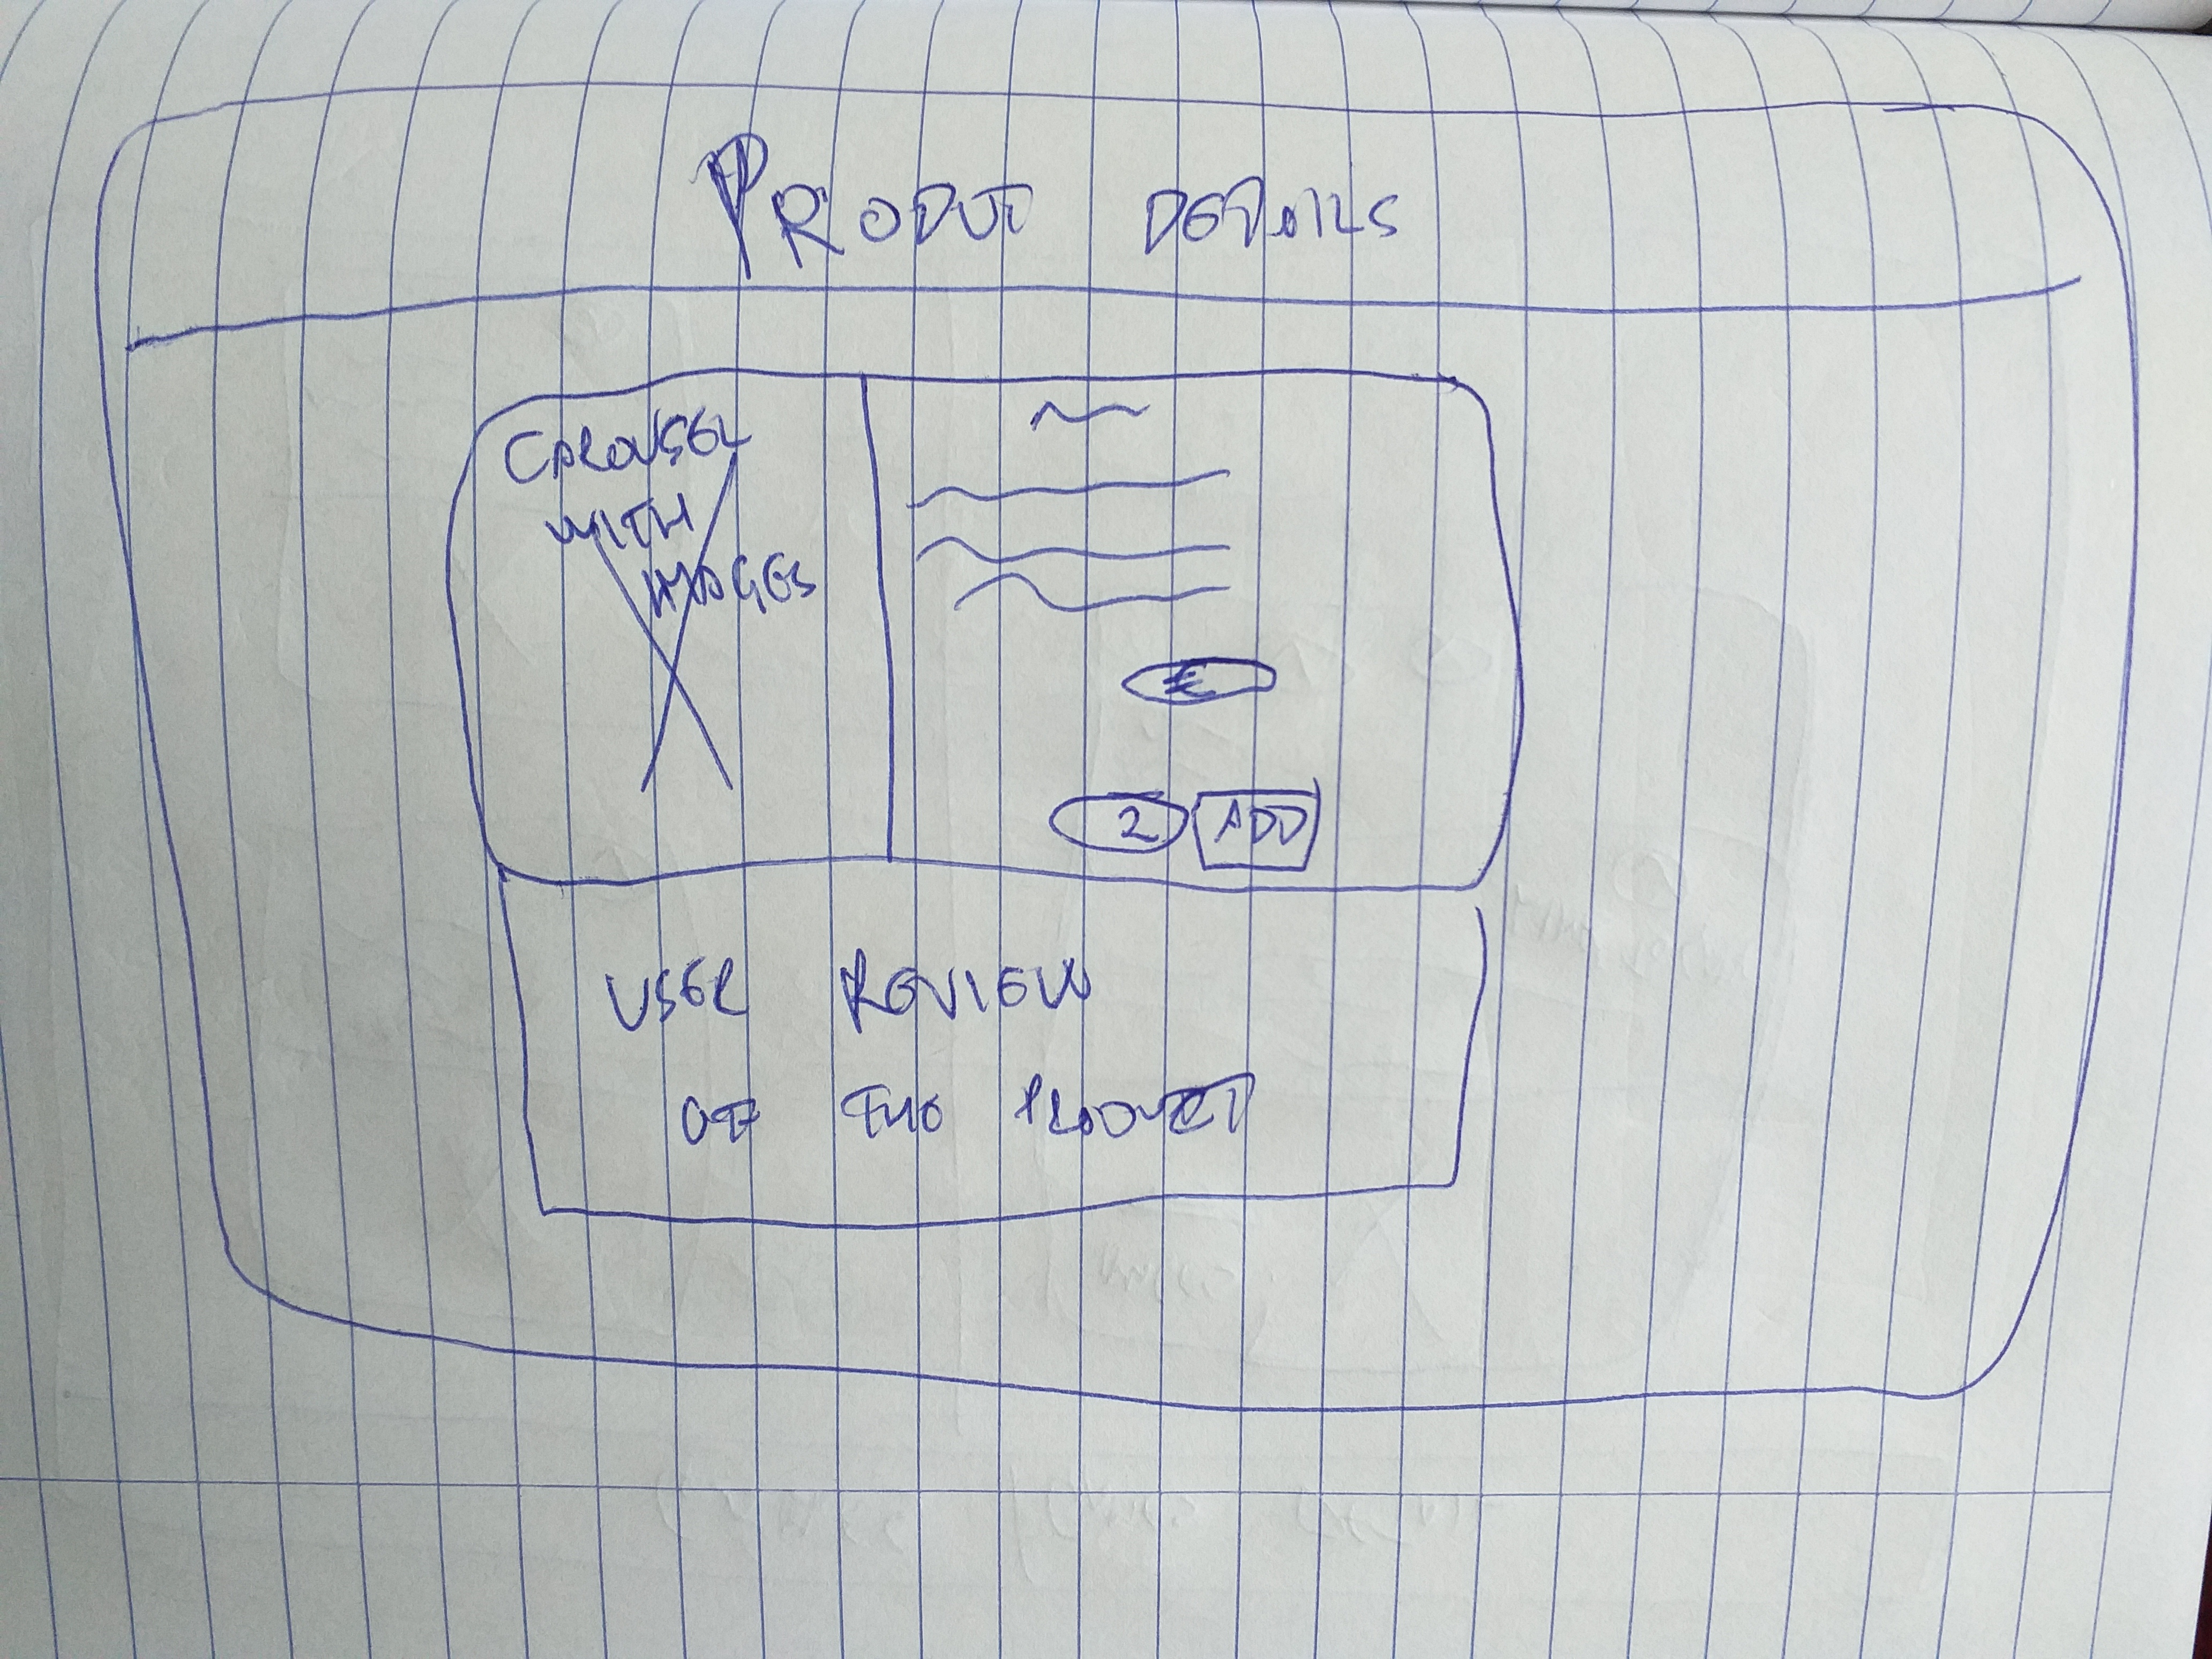 PRODUT DETAILS
CAROUSEL
WITH
IMAGES
€
2 ADD
USER REVIEW
OF THE PRODUCT